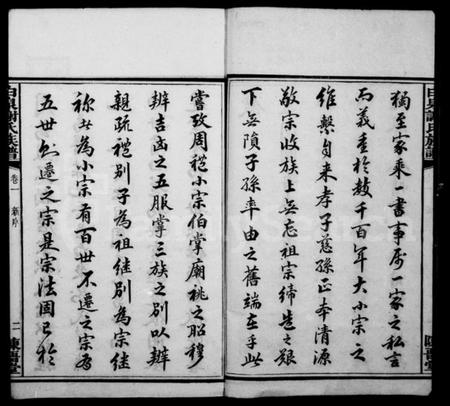 獨至家乘一書事屬一家之私言
而義重於數千百年大小宗之
維繫自來孝子慈孫正本清源
敬宗收族上無忘祖宗締造之艱
下無隕子孫率由之舊端在乎此
嘗攷周禮小宗伯掌廟祧之昭穆
辨吉凶之五服掌三族之別以辨
親疏禮別子為祖繼別為宗繼
祢者為小宗有百世不遷之宗有
五世則遷之宗是宗法固已於
謝氏族譜
卷一
新序
二